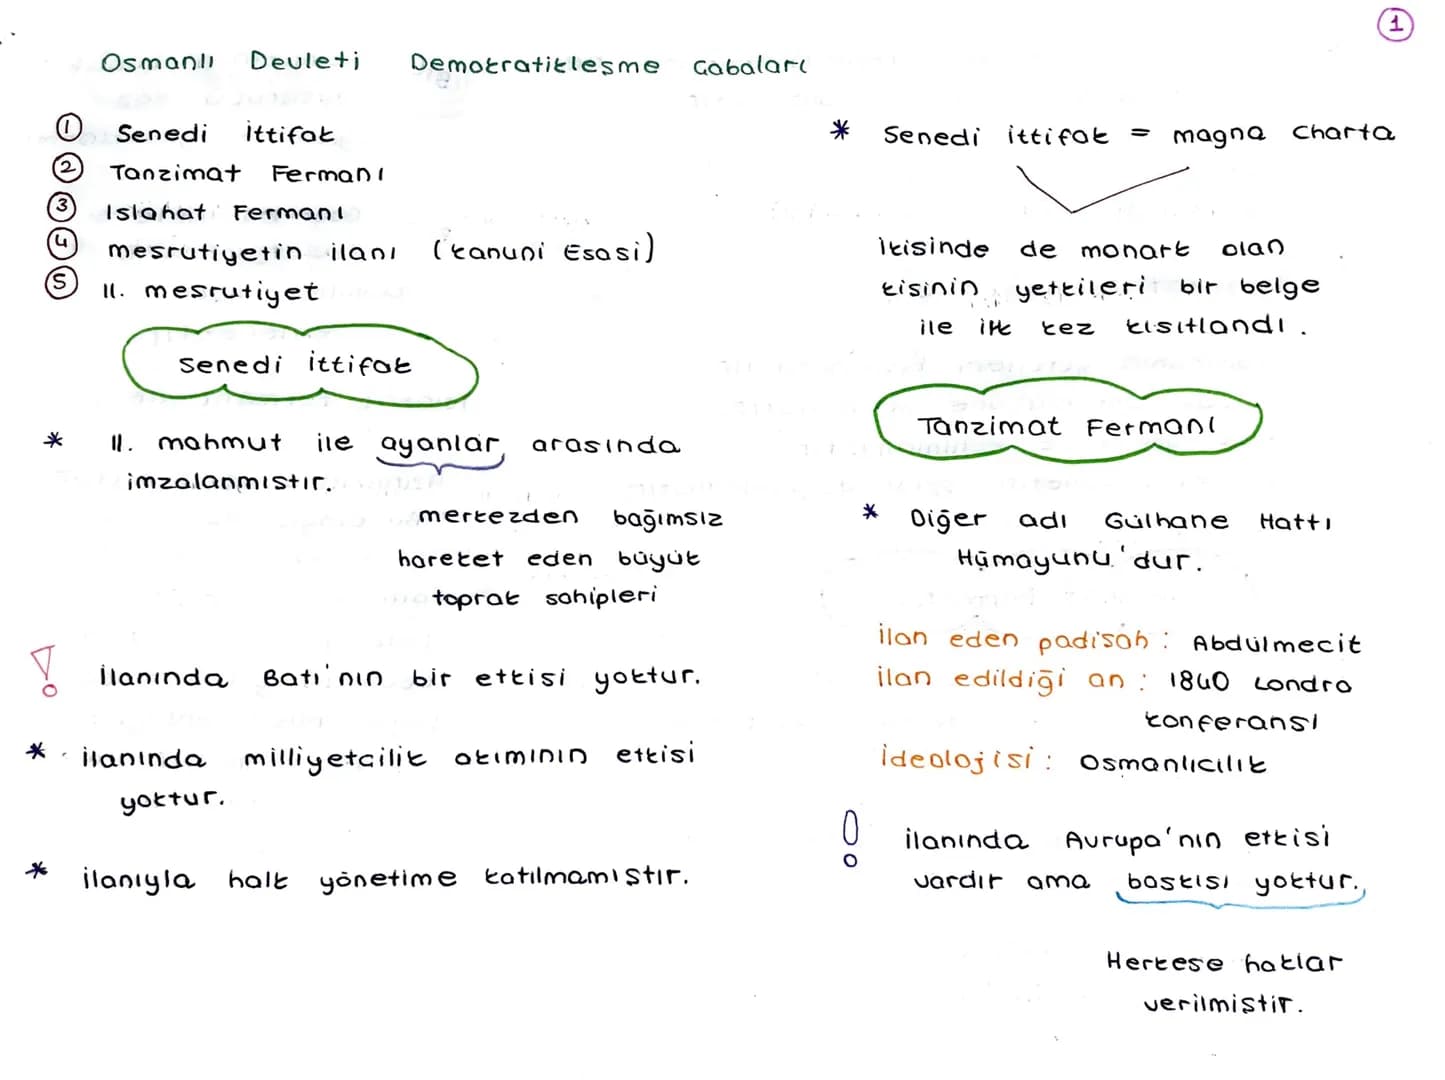 1
Osmanlı Devleti Demokratikleşme Çabaları
1 Senedi İttifak
2 Tanzimat Fermanı
3 Islahat Fermanı
4 meşrutiyetin ilanı (kanuni Esasi)
5 II. meşrutiyet
Senedi İttifak
* II. mahmut ile ayanlar arasında
imzalanmıştır.
merkezden bağımsız
hareket eden büyük
toprak sahipleri
! İlanında Batı'nın bir etkisi yoktur.
* ilanında milliyetcilik akımının etkisi
yoktur.
* ilanıyla halk yönetime katılmamıştır.
* Senedi ittifak = magna Charta
ikisinde de monark olan
kişinin yetkileri bir belge
ile ilk kez kısıtlandı.
Tanzimat Fermanı
* Diğer adı Gülhane Hattı
Hümayunu'dur.
ilan eden padişah : Abdülmecit
ilan edildiği an : 1840 Londra
konferansı
ideolojisi : Osmanlıcılık
! ilanında Avrupa'nın etkisi
vardır ama baskısı yoktur.
Herkese haklar
verilmiştir.